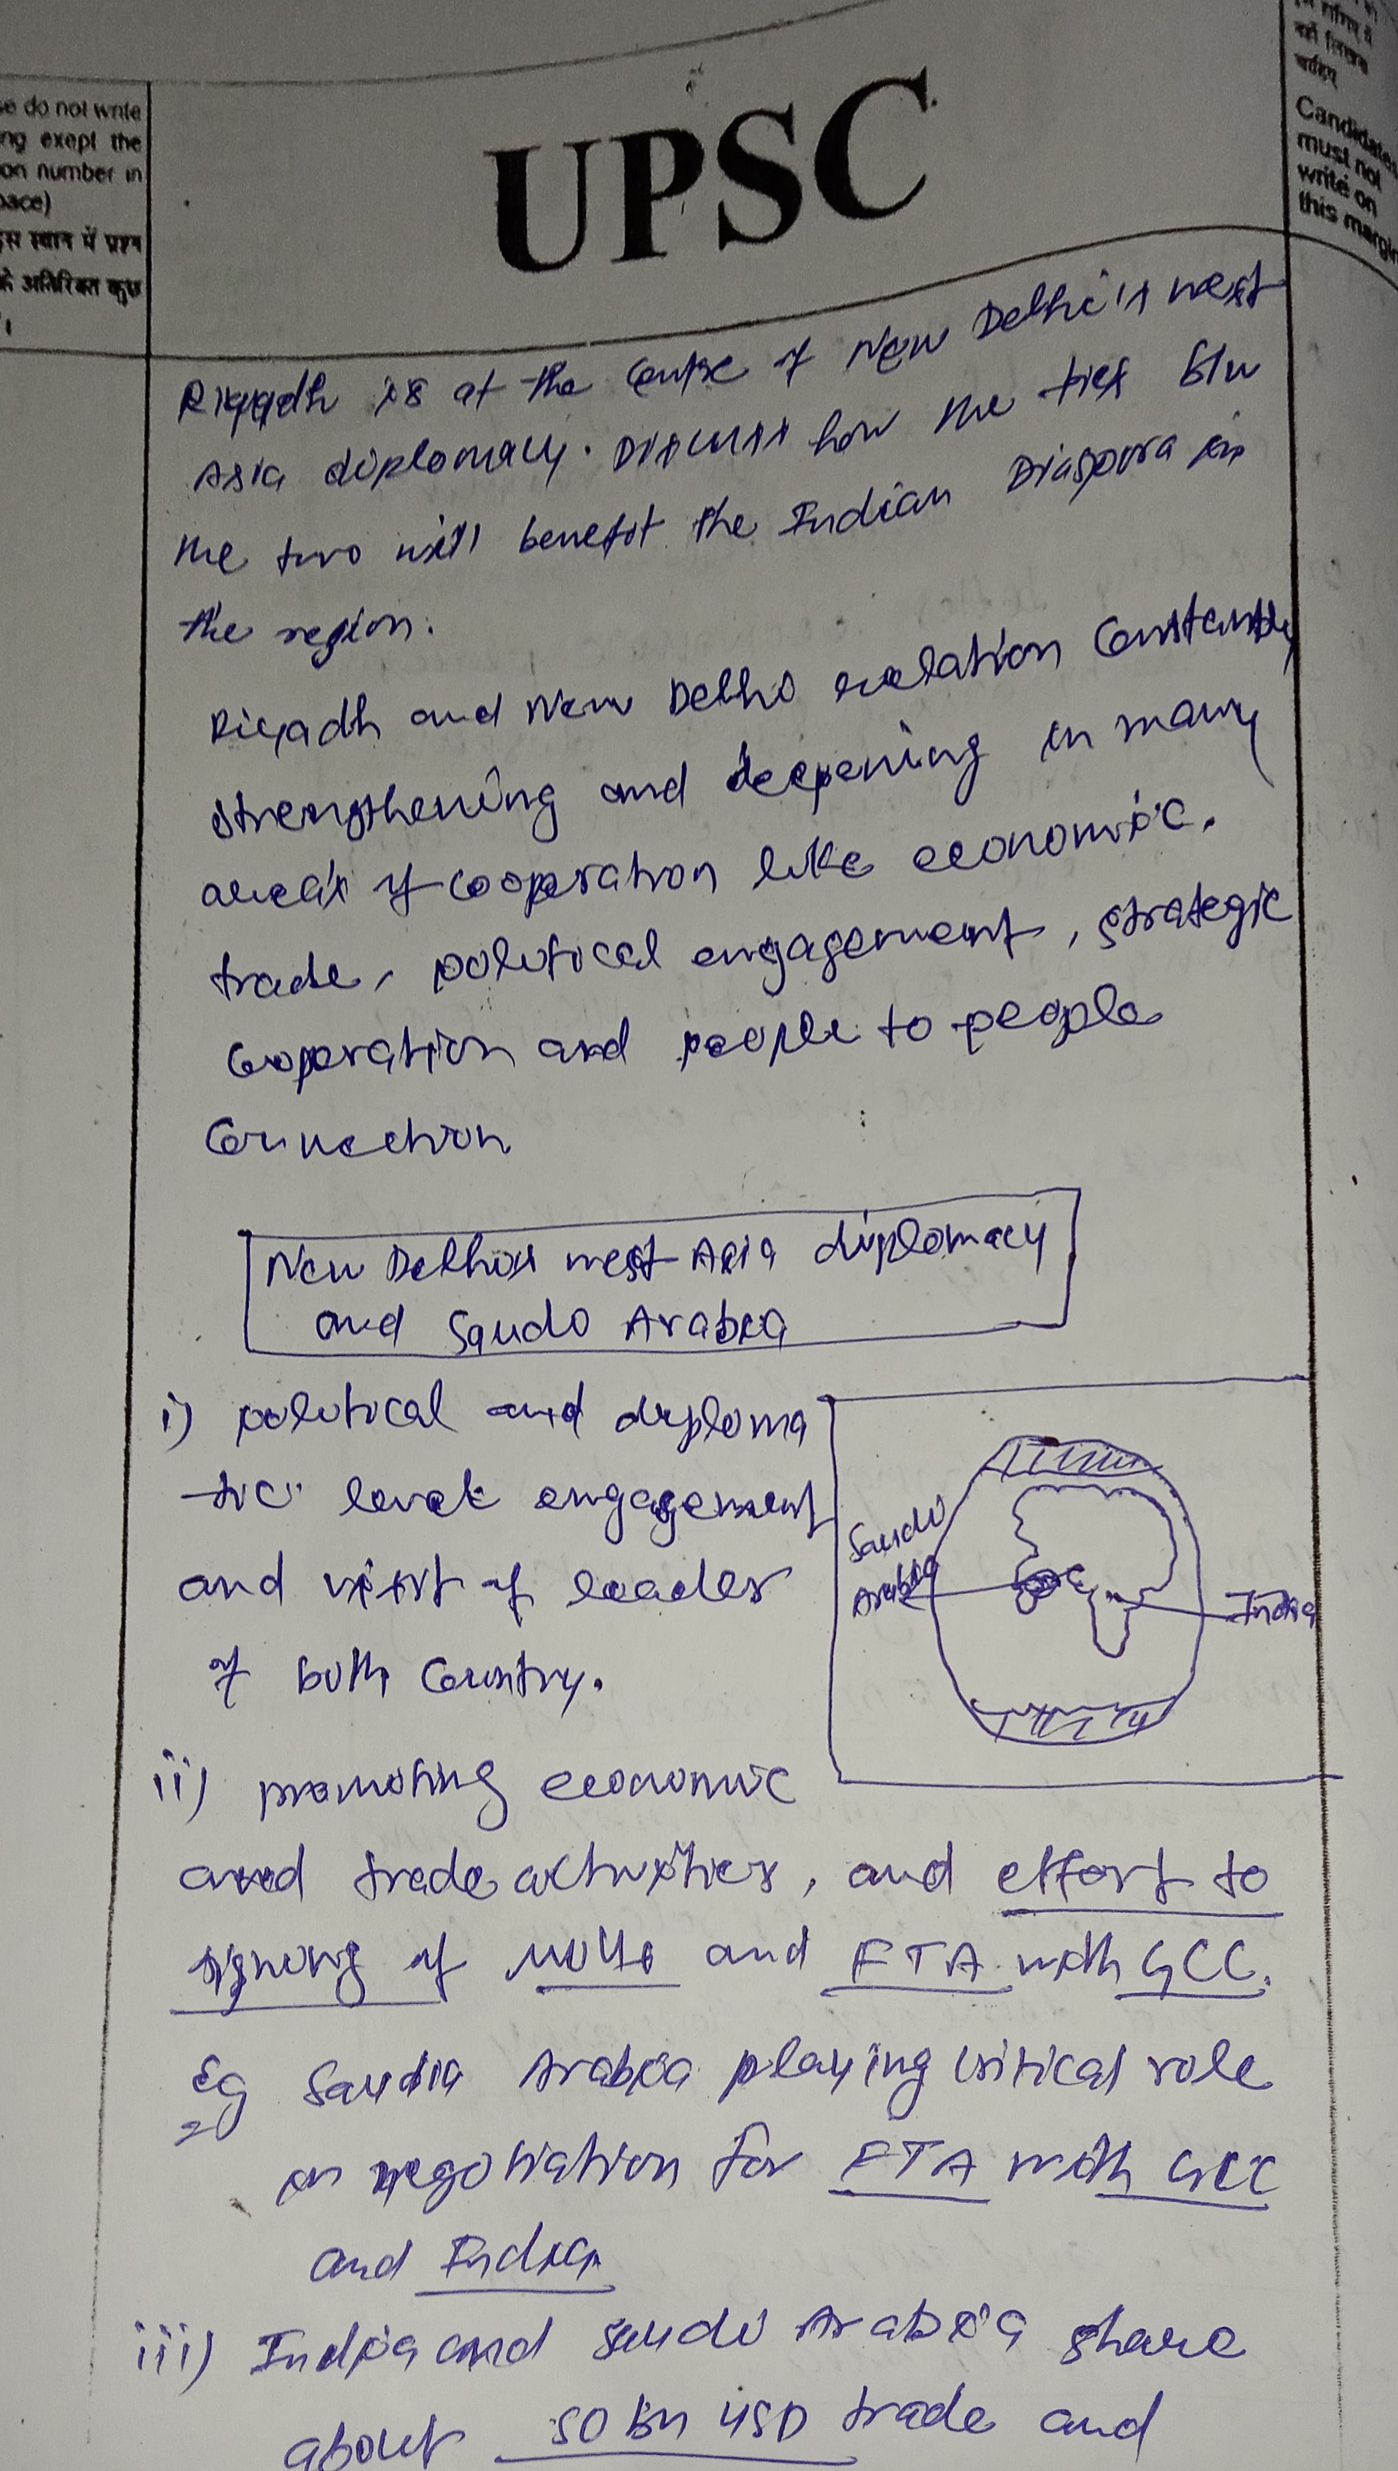 se do not write
ng exept the
on number in
pace)
इस स्थान में प्रश्न
के अतिरिक्त कुछ
UPSC
नहीं लिखना
चाहिए
Candidates
must not
write on
this margin
Riyadh is at the centre of New Delhi's west
Asia diplomacy. Discuss how the ties b/w
the two will benefit the Indian Diaspora in
the region.
Riyadh and New Delhi relation constantly
strengthening and deepening in many
areas of cooperation like economic,
trade, political engagement, strategic
cooperation and people to people
connection
New Delhi's west Asia diplomacy
and Saudi Arabia
i) political and diploma
-tic level engagement
and visit of leader
of both country.
Saudi
Arabia
India
ii) promoting economic
and trade activities, and effort to
signing of MOUs and FTA with GCC.
Eg Saudia Arabia playing critical role
in negotiation for FTA with GCC
and India
iii) India and Saudi Arabia share
about 50 bn USD trade and